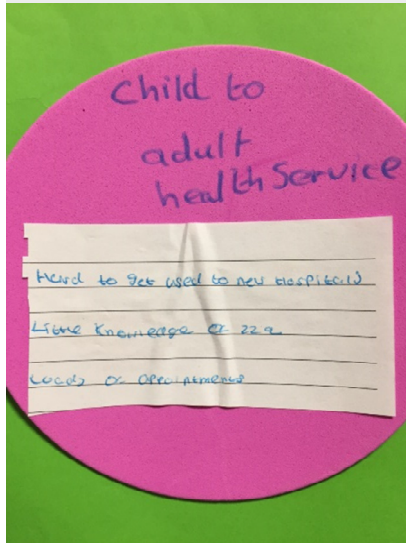 Child to
adult
health Service
Hard to get used to new Hospitals
Little Knowledge of 22q
Loads of appointments